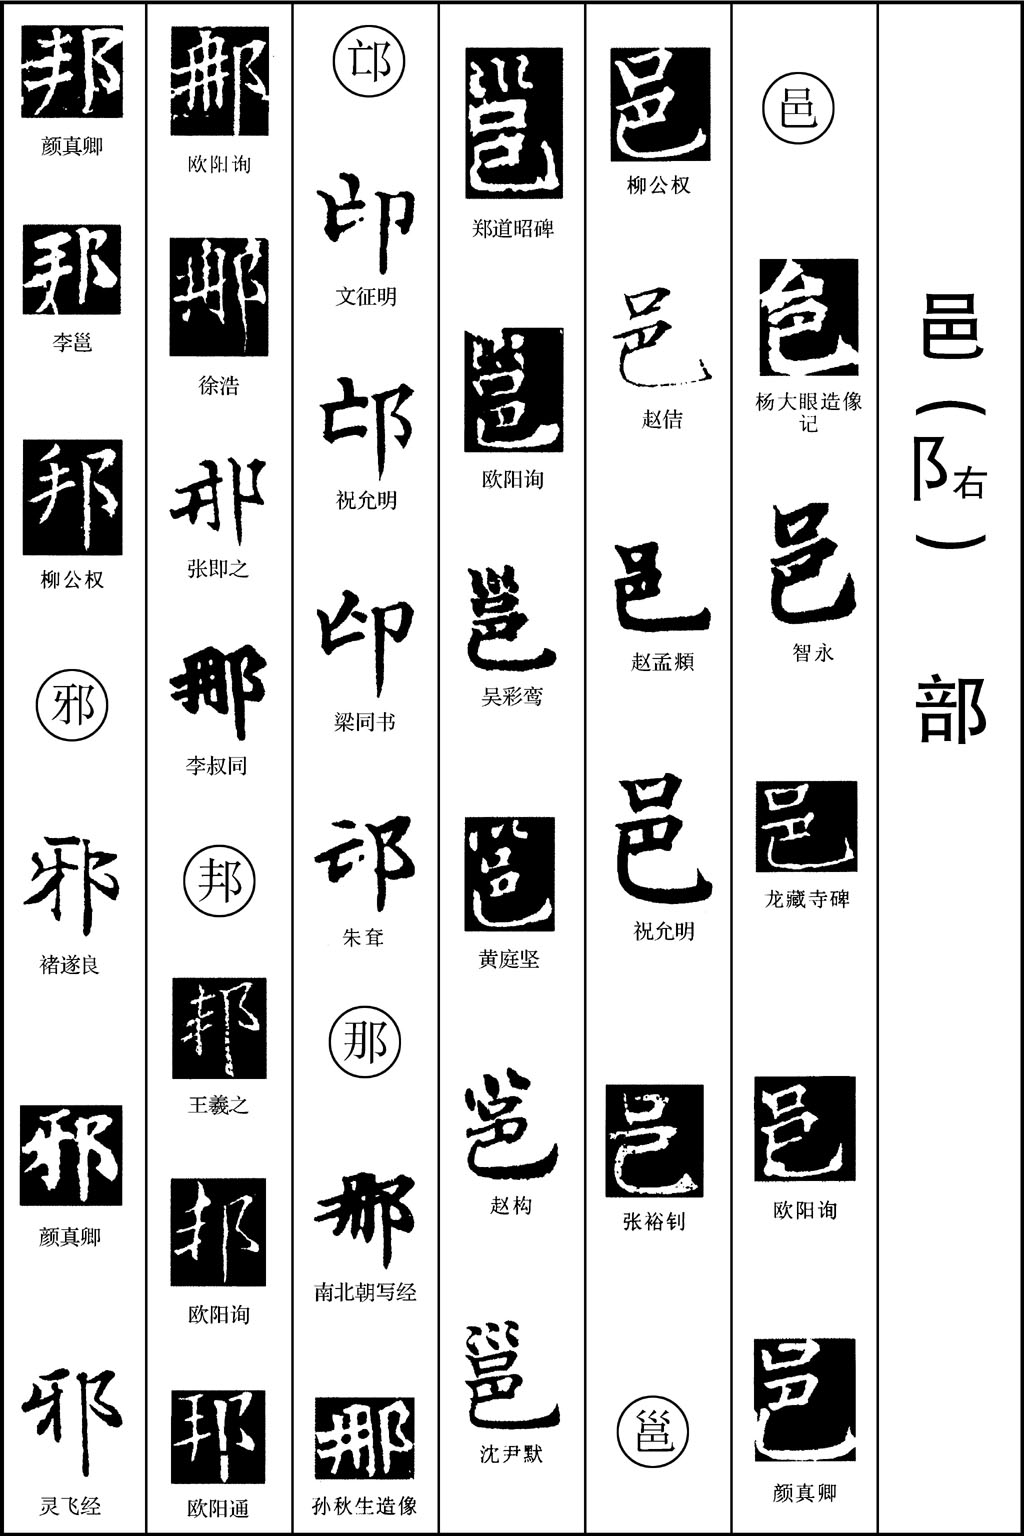 邑(阝右)部
邑
邑
杨大眼造像
记
邑
智永
邑
龙藏寺碑
邑
欧阳询
邑
颜真卿
邑
柳公权
邑
赵佶
邑
赵孟頫
邑
祝允明
邑
张裕钊
邕
邕
郑道昭碑
邕
欧阳询
邕
吴彩鸾
邕
黄庭坚
邕
赵构
邕
沈尹默
邙
邙
文征明
邙
祝允明
邙
梁同书
邙
朱耷
那
那
南北朝写经
那
孙秋生造像
那
欧阳询
那
徐浩
那
张即之
那
李叔同
邦
邦
王羲之
邦
欧阳询
邦
欧阳通
邦
颜真卿
邦
李邕
邦
柳公权
邪
邪
褚遂良
邪
颜真卿
邪
灵飞经